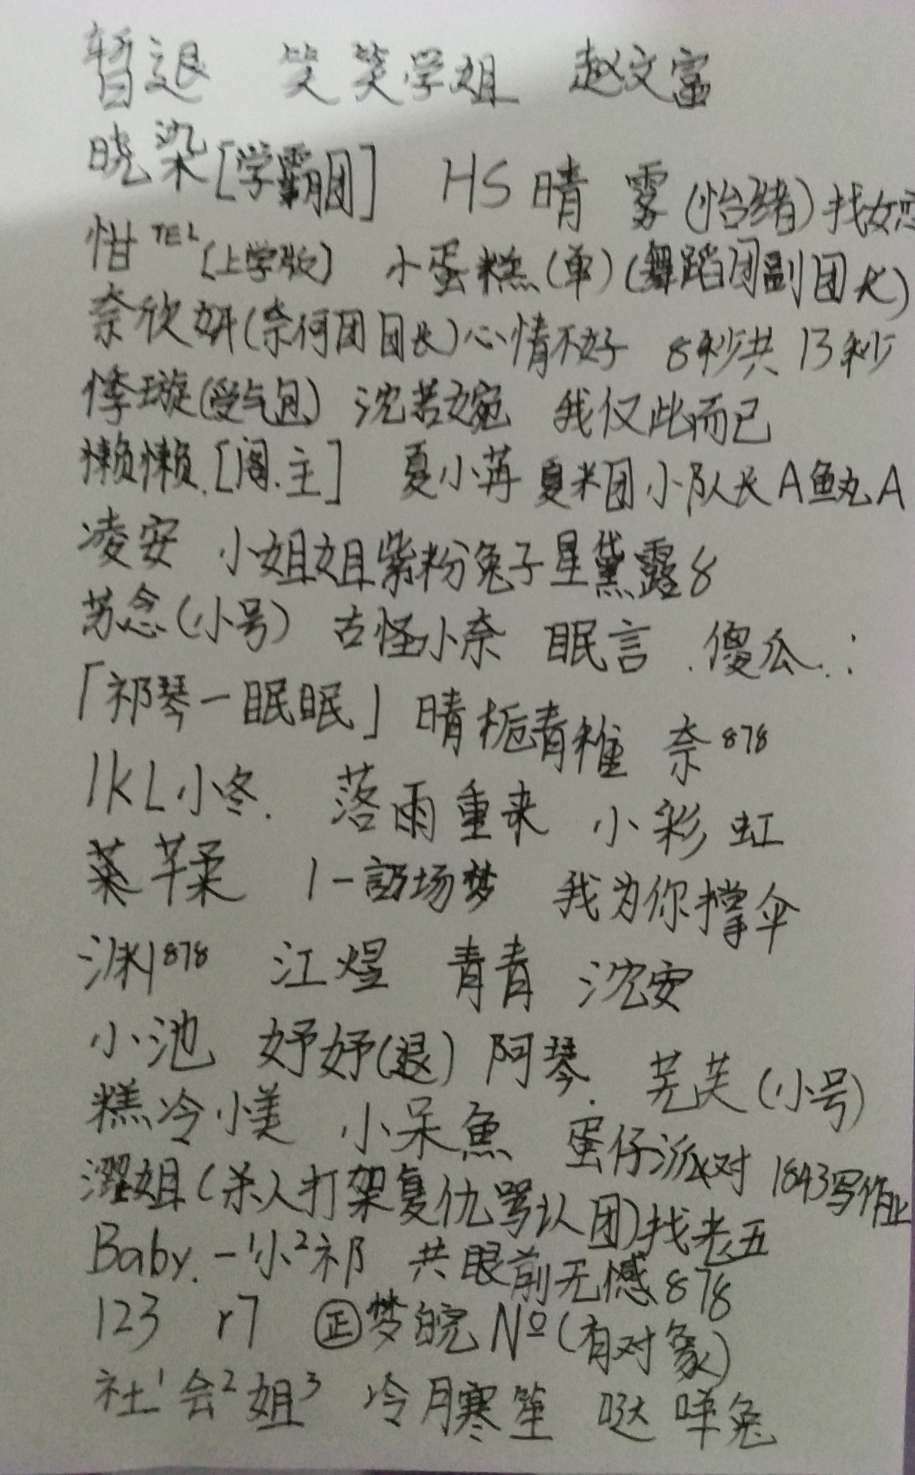 暂退 笑笑学姐 赵文富
晓染[学霸团] HS晴 雾(怡绪)找女恋
柑TEL[上学版] 小蛋糕(单)(舞蹈团副团长)
奈欣妍(奈何团团长)心情不好 8秒共13秒
季璇(受气包) 沈若婉 我仅此而已
懒懒.[阁.主] 夏小苒 夏米团小队长A鱼丸A
凌安 小姐姐紫粉兔子星黛露8
苏念(小号) 古怪小奈 眠言 .傻瓜.:
「祁琴一眠眠」 晴栀青稚 奈878
1KL小冬. 落雨重来 小彩虹
菜芊柔 1一訪场梦 我为你撑伞
渊878 江煜 青青 沈安
小池 妤妤(退) 阿琴. 芜芙(小号)
糕冷小美 小呆魚 蛋仔派对 1843写作业
澀姐(杀人打架复仇骂认团)找老五
Baby.一1小2祁 共眼前无憾878
123 r7 正梦皖No(有对象)
社1会2姐3 冷月寒笙 哒咩兔